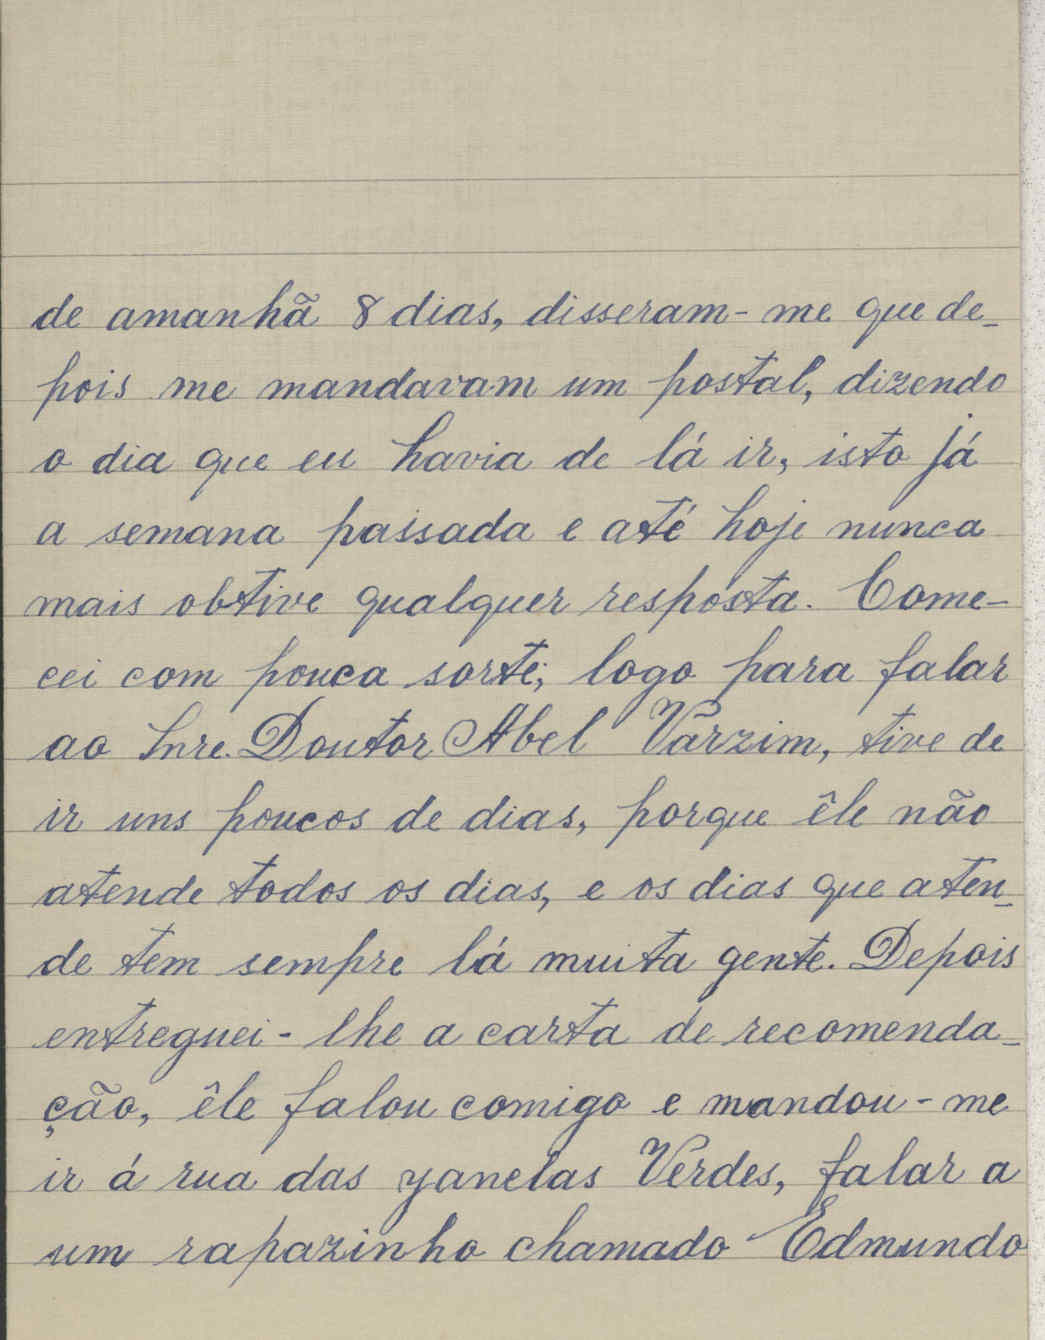 de amanhã 8 dias, disseram-me que de-
pois me mandavam um postal, dizendo
o dia que eu havia de lá ir, isto já
a semana passada e até hoje nunca
mais obtive qualquer resposta. Come-
cei com pouca sorte; logo para falar
ao Snre. Doutor Abel Varzim, tive de
ir uns poucos de dias, porque êle não
atende todos os dias, e os dias que aten-
de tem sempre lá muita gente. Depois
entreguei-lhe a carta de recomenda-
ção, êle falou comigo e mandou-me
ir á rua das yanelas Verdes, falar a
um rapazinho chamado Edmundo